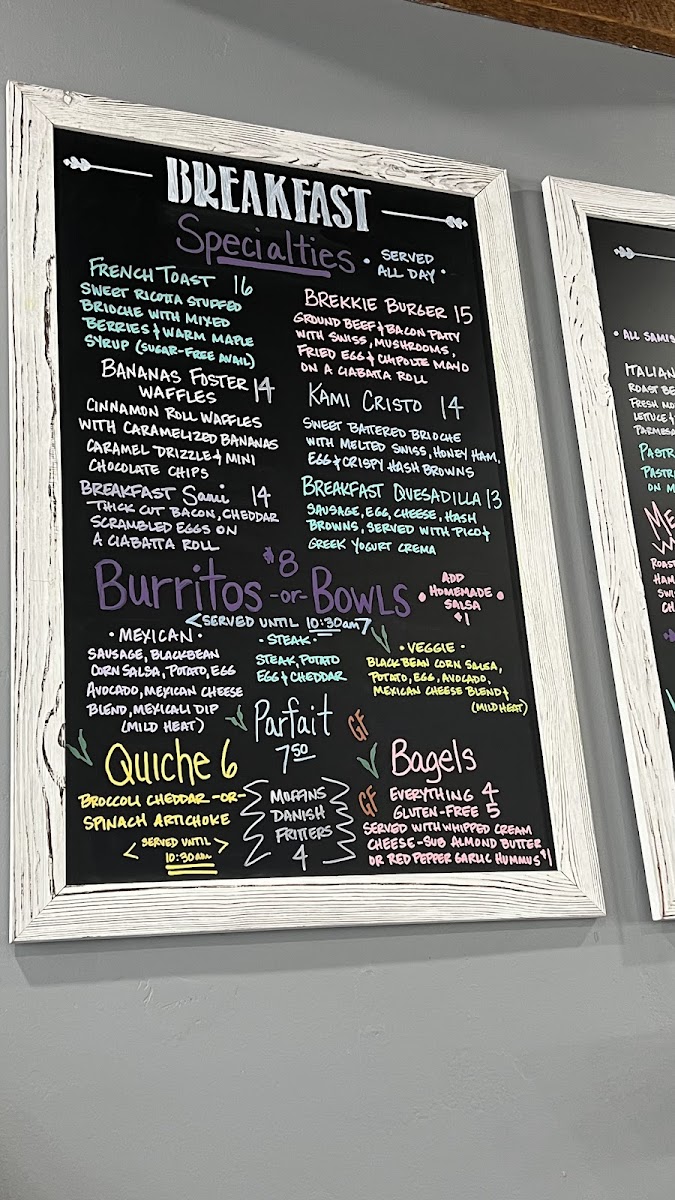 BREAKFAST
Specialties
• SERVED
ALL DAY •
FRENCH TOAST 16
SWEET RICOTTA STUFFED
BRIOCHE WITH MIXED
BERRIES & WARM MAPLE
SYRUP (SUGAR-FREE AVAIL)
BANANAS FOSTER 14
WAFFLES
CINNAMON ROLL WAFFLES
WITH CARAMELIZED BANANAS
CARAMEL DRIZZLE & MINI
CHOCOLATE CHIPS
BREAKFAST Sami 14
THICK CUT BACON, CHEDDAR
SCRAMBLED EGGS ON
A CIABATTA ROLL
BREKKIE BURGER 15
GROUND BEEF & BACON PATTY
WITH SWISS, MUSHROOMS,
FRIED EGG & CHIPOLTE MAYO
ON A CIABATTA ROLL
KAMI CRISTO 14
SWEET BATTERED BRIOCHE
WITH MELTED SWISS, HONEY HAM,
EGG & CRISPY HASH BROWNS
BREAKFAST QUESADILLA 13
SAUSAGE, EGG, CHEESE, HASH
BROWNS, SERVED WITH PICO &
GREEK YOGURT CREMA
$8
Burritos -or- BOWLS
<SERVED UNTIL 10:30am>
ADD
• HOMEMADE •
SALSA
$1
• MEXICAN •
SAUSAGE, BLACKBEAN
CORN SALSA, POTATO, EGG
AVOCADO, MEXICAN CHEESE
BLEND, MEXICALI DIP
(MILD HEAT)
• STEAK •
STEAK, POTATO
EGG & CHEDDAR
• VEGGIE •
BLACK BEAN CORN SALSA,
POTATO, EGG, AVOCADO,
MEXICAN CHEESE BLEND &
(MILD HEAT)
Parfait GF
7.50
Quiche 6
BROCCOLI CHEDDAR -OR-
SPINACH ARTICHOKE
< SERVED UNTIL >
10:30am
MUFFINS
DANISH
FRITTERS
4
Bagels
EVERYTHING 4
GF GLUTEN-FREE 5
SERVED WITH WHIPPED CREAM
CHEESE - SUB ALMOND BUTTER
OR RED PEPPER GARLIC HUMMUS $1
• ALL SAMIS
ITALIAN
ROAST BE
FRESH MO
LETTUCE &
PARMESA
PASTR
PASTR
ON M
ME
ROAS
HAM
SWI
CH